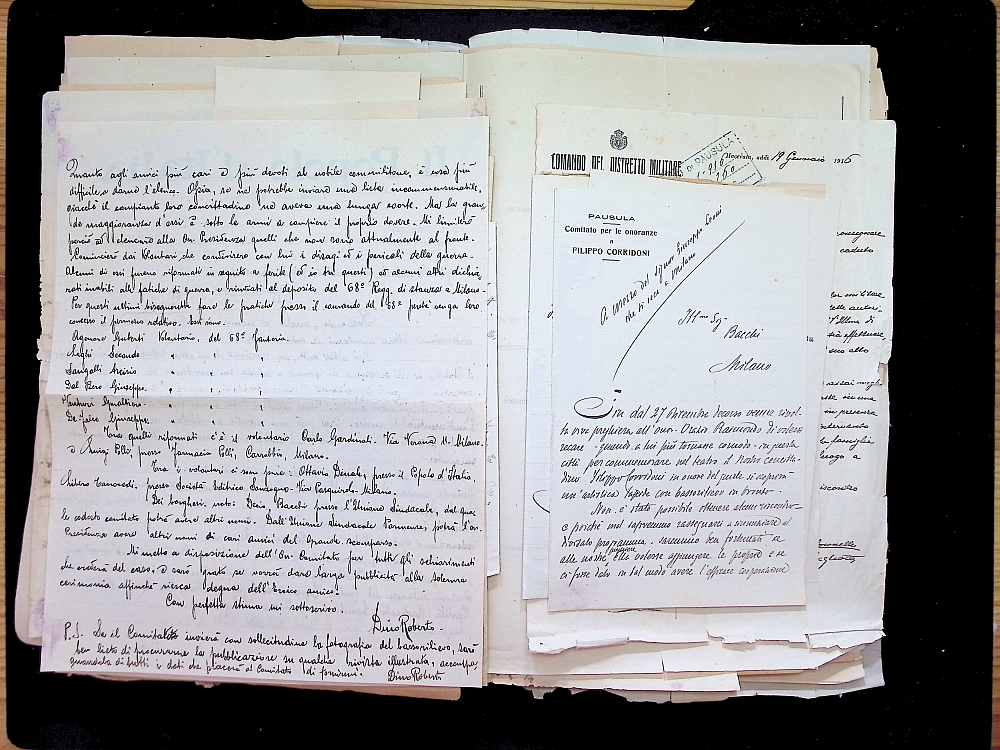 Quanto agli amici più cari e più devoti al nobile commilitone, è cosa più
difficile a darne l'elenco. Ossia, se ne potrebbe inviare una lista incommensurabile,
giacchè il compianto loro concittadino ne aveva una lunga coorte. Ma la gran-
de maggioranza d'essi è sotto le armi a compiere il proprio dovere. Mi limiterò
perciò ad elencare alla On. Presidenza quelli che non sono attualmente al fronte.
Comincierò dai Volontari che condivisero con lui i disagi ed i pericoli della guerra.
Alcuni di essi furono riformati in seguito a ferite (ed io tra questi) ed alcuni altri dichia-
rati inabili alle fatiche di guerra, e rinviati al deposito del 68º Regg. di stanza a Milano.
Per questi ultimi bisognerebbe fare le pratiche presso il comando del 68º perchè venga loro
concesso il permesso relativo. Essi sono:
Agenore Guberti Volontario, del 68º fanteria.
Secondo " " "
Sangalli " " "
Dal Pero Giuseppe " " "
" " "
De Giuseppe " " "
Tra quelli riformati c'è il volontario Carlo Gardinali. Via Verona 11. Milano.
e Luigi Polli, presso Farmacia Polli, Carrobbio, Milano.
Tra i non volontari ci sono: Ottavio Dinale, presso il Popolo d'Italia,
Libero Tancredi, presso Società Editrice Sonzogno - Via Pasquirolo - Milano.
Dei borghesi noto: Decio Bacchi presso l'Unione Sindacale, dal quale
le codesto comitato potrà avere altri nomi. Dall'Unione Sindacale Parmense, potrà l'On.
Presidenza avere altri nomi di cari amici del Grande scomparso.
Mi metto a disposizione dell'On. Comitato per tutti gli schiarimenti
che crederà del caso, e sarò grato se vorrà dare larga pubblicità alla solenne
cerimonia affinchè riesca degna dell'Eroico amico.
Con perfetta stima mi sottoscrivo.
Dino Roberto
P.S. Se il Comitato invierà con sollecitudine la fotografia del bassorilievo, sarò
ben lieto di procurarne la pubblicazione su qualche rivista illustrata, accompa-
gnandola di tutti i dati che piacerà al Comitato di fornirmi. Dino Roberto
COMANDO DEL DISTRETTO MILITARE
DI PAUSULA
Macerata, addì 19 Gennaio 1916
PAUSULA
Comitato per le onoranze
a
FILIPPO CORRIDONI
A mezzo del signor Giuseppe Leoni
che si reca a Milano
Ill.mo Sig.
Bacchi
Milano
Fin dal 27 Dicembre decorso venne rivol-
ta viva preghiera all'Onor. Orazio Raimondo di volersi
recare - quando a lui più tornasse comodo - in questa
città per commemorare nel teatro il nostro concitta-
dino Filippo Corridoni in onore del quale si scoprirà
un'artistica lapide con bassorilievo in bronzo.
Non è stato possibile ottenere alcun riscontro
e poichè mal sapremmo rassegnarci a rinunziare al
divisato programma, saremmo ben fortunati se
alle nostre premure Ella volesse aggiungere le proprie e se
ci fosse dato in tal modo avere l'efficace cooperazione